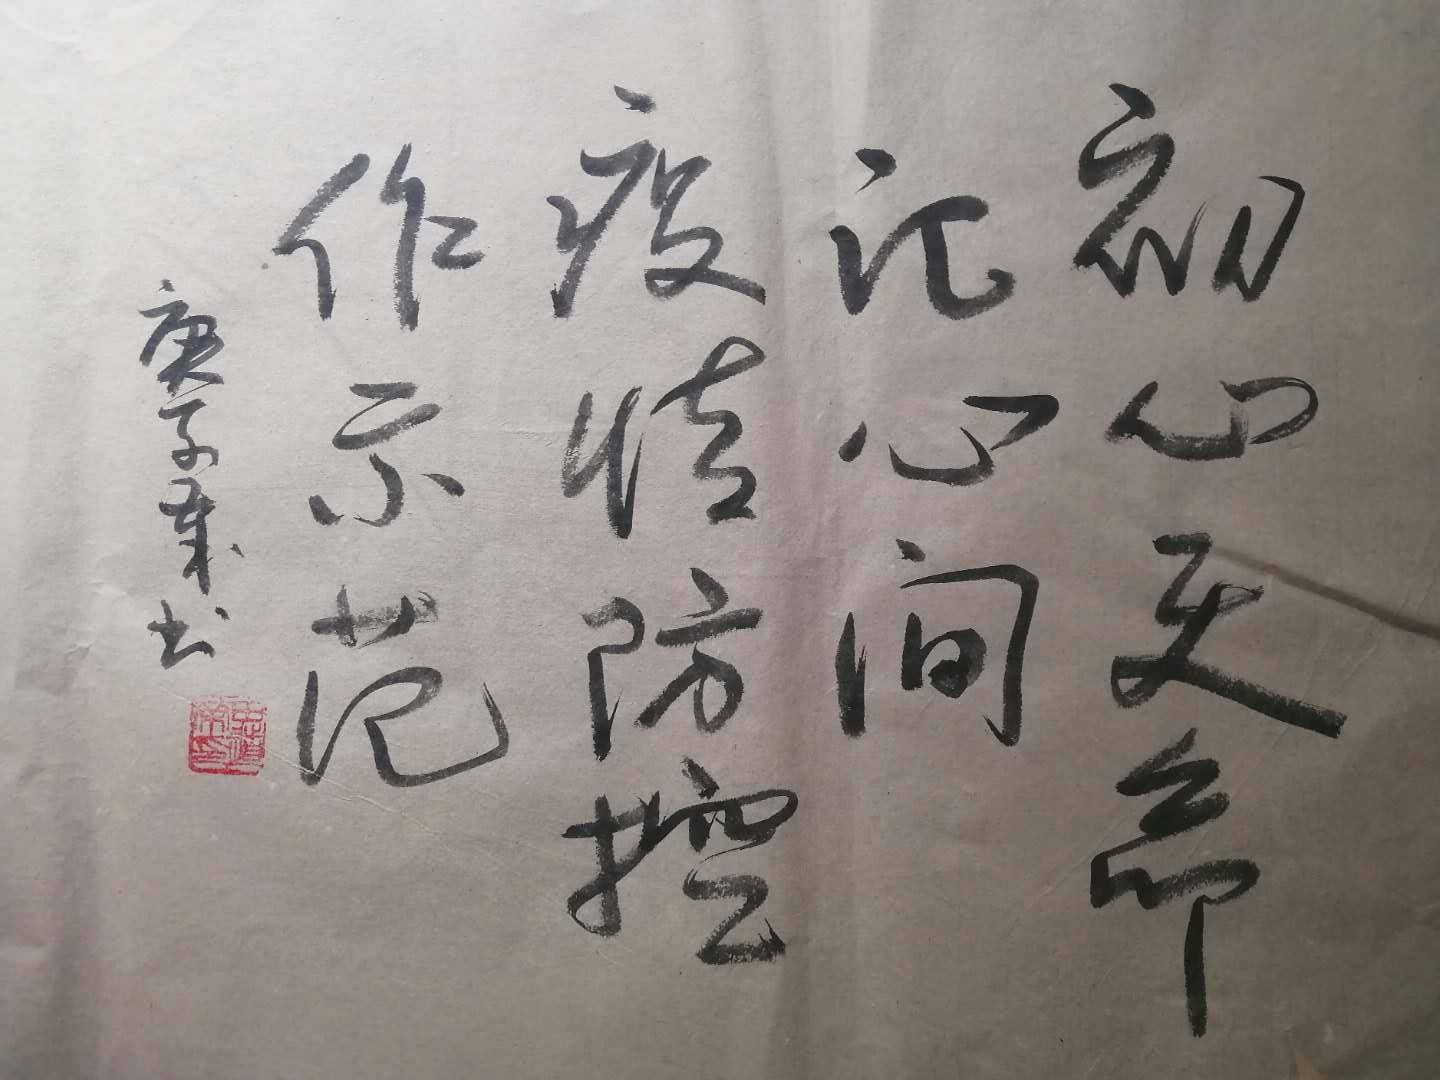 初心更命
记心间
疫情防控
作示范
庚子荣书